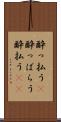 酔っ払う
酔っぱらう
酔払う